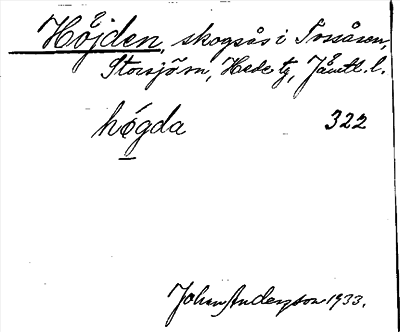 Höjden, skogsås i Tossåsen,
Storsjö sn, Hede tg, Jämtl. l.
högda 322
Johan Andersson 1933.